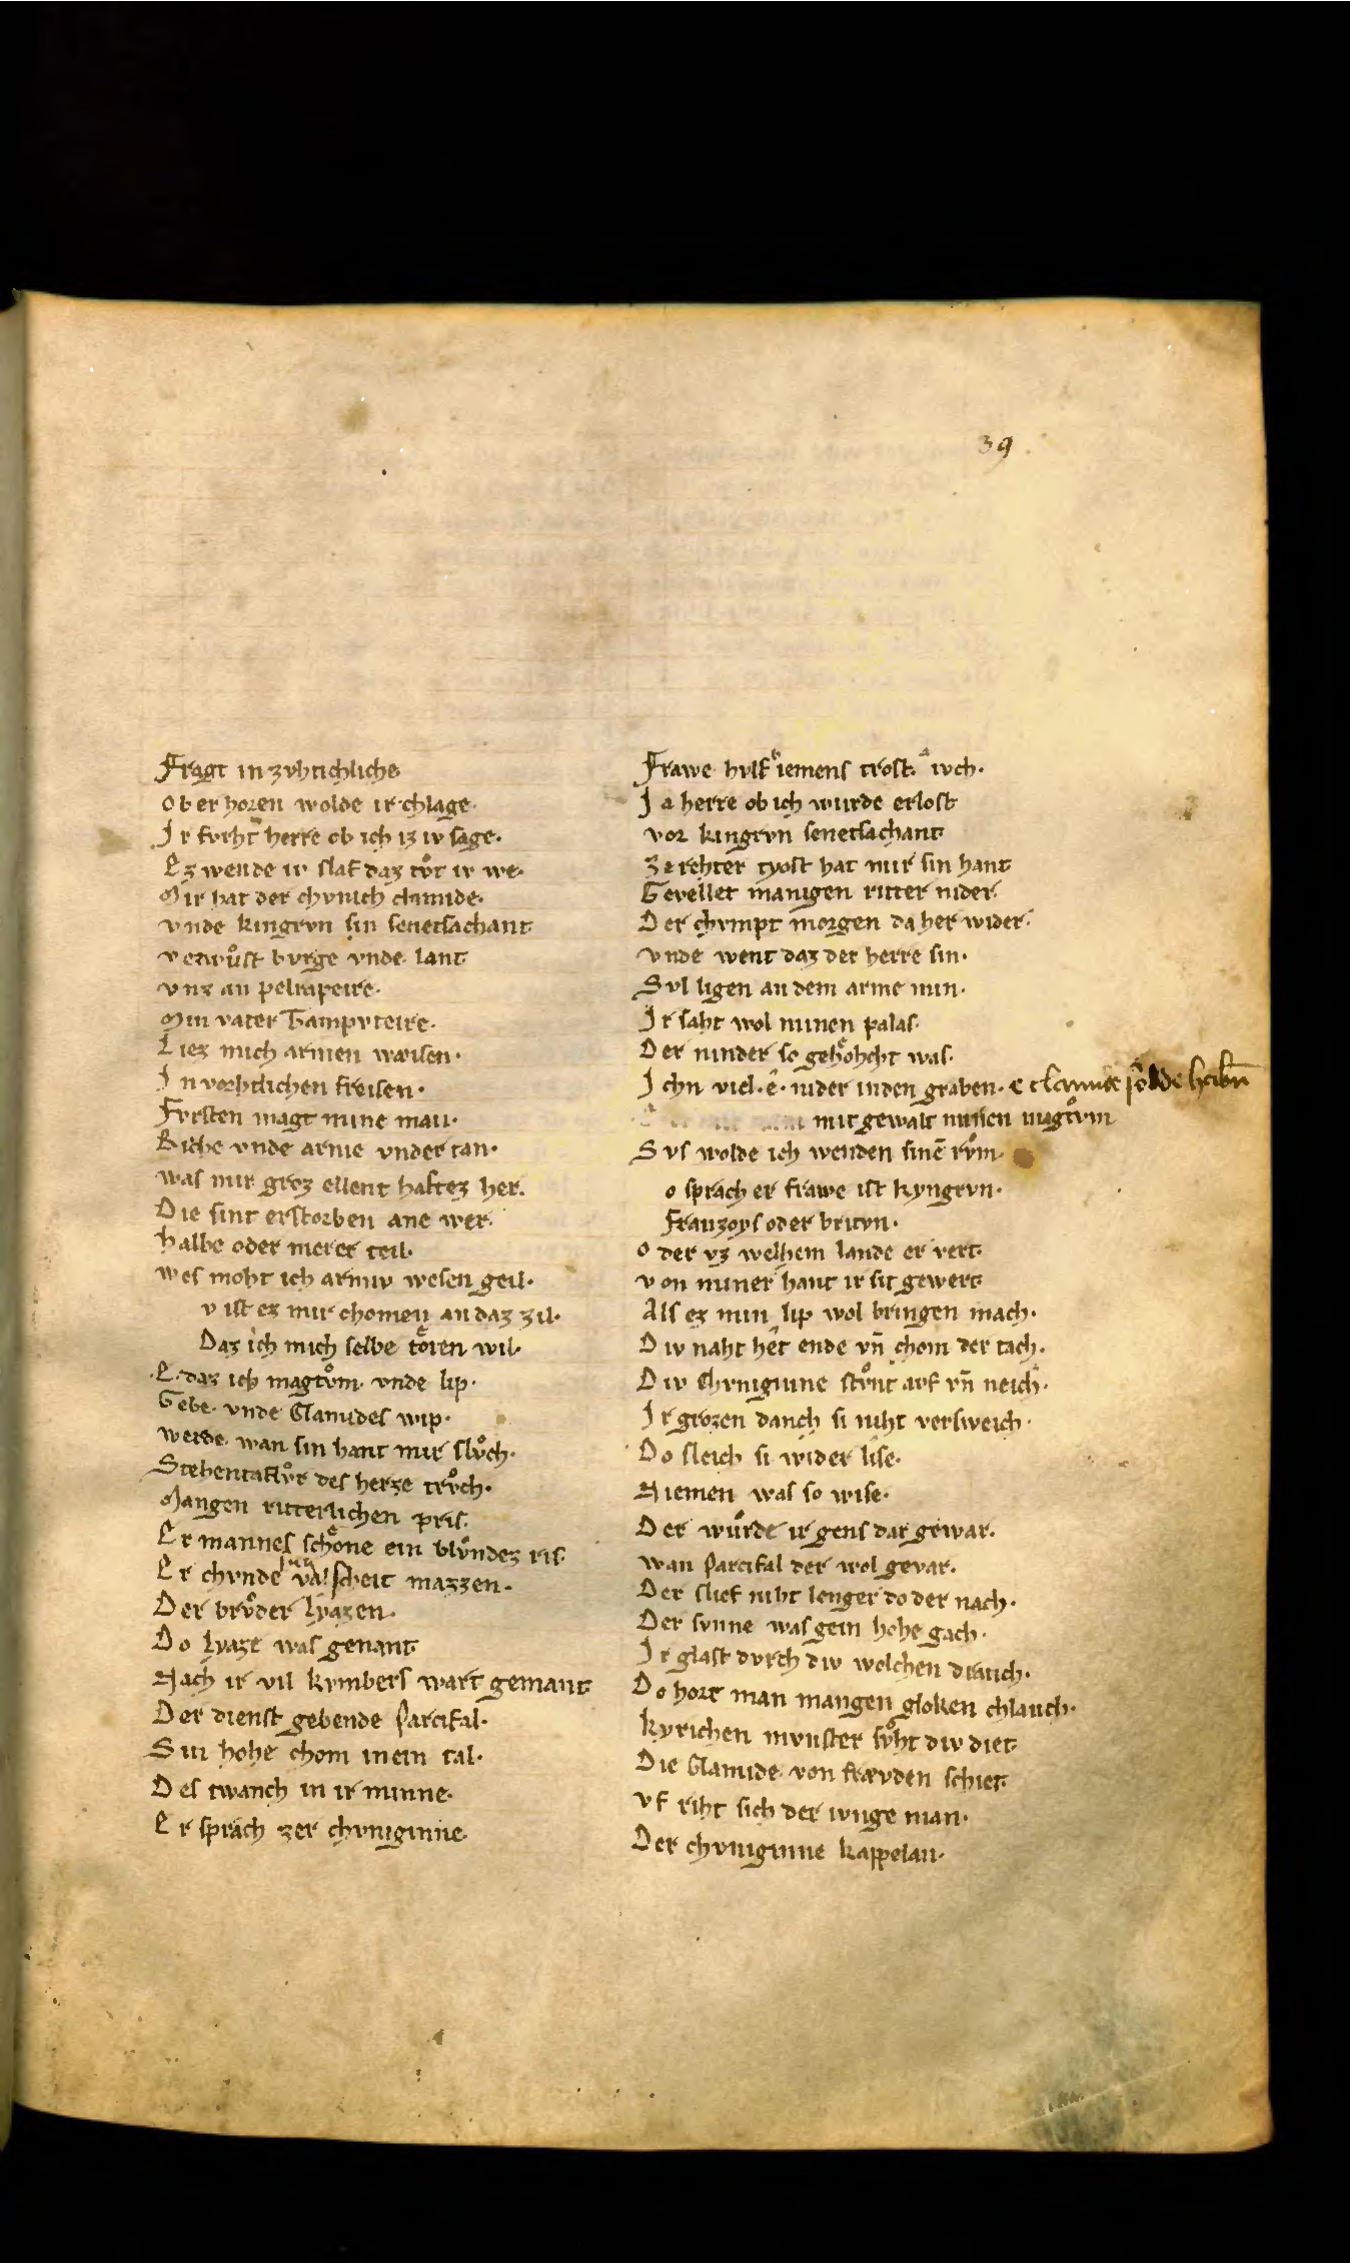 39
Fragt in zvhtichliche
Ob er horen wolde ir chlage.
Ir fvrht herre ob ich iz iv sage.
Ez wende iv slaf daz tv̊t iv we.
Mir hat der chvnich clamide.
vnde kingrvn sin senetsachant
verwv̊st bvrge vnde lant
vnz an pelrapeire.
Min vater Tampvteire.
Liez mich armen waisen.
In vorhtlichen freisen.
Fvrsten magt mine man.
Riche vnde arme vnder tan.
was mir groz ellent haftez her.
Die sint erstorben ane wer.
halbe oder merer teil.
wes moht ich armiv wesen geil.
v ist ez mir chomen an daz zil.
Daz ich mich selbe toͤten wil.
E. daz ich magtv̊m. vnde lip.
Gebe. vnde Clamides wip.
werde. wan sin hant mir slv̊ch.
Schentaflv̊r des herze trv̊ch.
Mangen ritterlichen pris.
Er mannes schoͤne ein blv̊ndez ris.
Er chvnde valscheit mazzen.
Der brv̊der lyazen.
Do lyaze was genant
Nach ir vil kvmbers wart gemant
Der dienst gebende parcifal.
Sin hohe chom inein tal.
Des twanch in ir minne.
Er sprach zer chvniginne.
Frawe hvlf iemens trost ivch.
Ja herre ob ich wurde erlost
vor kingrvn senetsachant
ze rehter tyost hat mir sin hant
Gevellet manigen ritter nider.
Der chvmpt morgen da her wider.
vnde went daz der herre sin.
Svl ligen an dem arme min.
Ir saht wol minen palas.
Der ninder so gehoͤhcht was.
Ichn viel. ê. nider inden graben. e clamide solde habn
mit gewalt minen magtv̊m
Svs wolde ich wenden sinē rv̊m.
o sprach er frawe ist kyngrvn.
Franzoys oder brityn.
oder vz welhem lande er vert.
von miner hant ir sit gewert
Als ez min lip wol bringen mach.
Div naht het ende vn̄ chom der tach.
Div Chvniginne stv̊nt avf vn̄ neich.
Ir grozen danch si niht versweich.
Do sleich si wider lise.
Niemen was so wise.
Der wurde ir gens dar gewar.
wan parcifal der wol gevar.
Der slief niht lenger do der nach.
Der svnne was gein hohe gach.
Ir glast dvrch div wolchen dranch.
Do hort man mangen gloken chlanch.
kyrichen mvnster sv̊ht div diet
Die Clamide. von frævden schiet.
vf riht sich der ivnge man.
Der chvniginne kappelan.